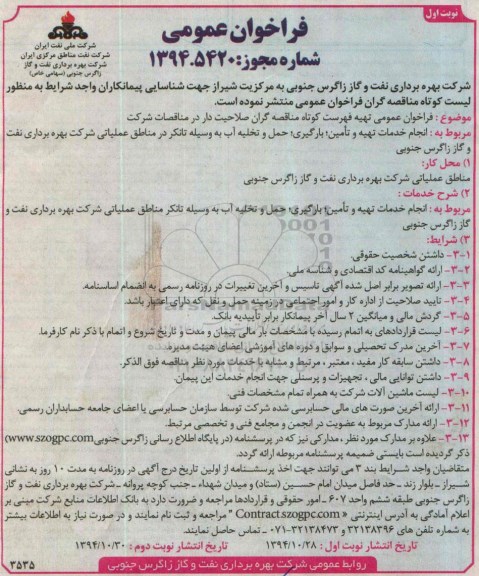 نوبت اول
فراخوان عمومی
شماره مجوز: ۱۳۹۴.۵۴۲۰
شرکت ملی نفت ایران
شرکت نفت مناطق مرکزی ایران
شرکت بهره برداری نفت و گاز
زاگرس جنوبی (سهامی خاص)
شرکت بهره برداری نفت و گاز زاگرس جنوبی به مرکزیت شیراز جهت شناسایی پیمانکاران واجد شرایط به منظور
لیست کوتاه مناقصه گران فراخوان عمومی منتشر نموده است.
موضوع : فراخوان عمومی تهیه فهرست کوتاه مناقصه گران صلاحیت دار در مناقصات شرکت
مربوط به : انجام خدمات تهیه و تأمین؛ بارگیری؛ حمل و تخلیه آب به وسیله تانکر در مناطق عملیاتی شرکت بهره برداری نفت
و گاز زاگرس جنوبی
۱) محل کار:
مناطق عملیاتی شرکت بهره برداری نفت و گاز زاگرس جنوبی
۲) شرح خدمات :
مربوط به : انجام خدمات تهیه و تأمین؛ بارگیری؛ حمل و تخلیه آب به وسیله تانکر مناطق عملیاتی شرکت بهره برداری نفت و
گاز زاگرس جنوبی
۳) شرایط:
۳-۱- داشتن شخصیت حقوقی.
۳-۲- ارائه گواهینامه کد اقتصادی و شناسه ملی.
۳-۳- ارائه تصویر برابر اصل شده آگهی تاسیس و آخرین تغییرات در روزنامه رسمی به انضمام اساسنامه.
۳-۴- تایید صلاحیت از اداره کار و امور اجتماعی در زمینه حمل و نقل که دارای اعتبار باشد.
۳-۵- گردش مالی و میانگین ۲ سال آخر پیمانکار برابر تأییدیه بانک.
۳-۶- لیست قراردادهای به اتمام رسیده با مشخصات بار مالی پیمان و مدت و تاریخ شروع و اتمام با ذکر نام کارفرما.
۳-۷- آخرین مدرک تحصیلی و سوابق و دوره های آموزشی اعضای هیئت مدیره.
۳-۸- داشتن سابقه کار مفید ، معتبر ، مرتبط و مشابه با خدمات مورد نظر مناقصه فوق الذکر.
۳-۹- داشتن توانایی مالی ، تجهیزات و پرسنلی جهت انجام خدمات این پیمان.
۳-۱۰- لیست ماشین آلات شرکت به همراه تمام مشخصات فنی.
۳-۱۱- ارائه آخرین صورت های مالی حسابرسی شده شرکت توسط سازمان حسابرسی یا اعضای جامعه حسابداران رسمی.
۳-۱۲- ارائه مدارک مربوط به عضویت در انجمن و مجامع فنی و تخصصی مرتبط.
۳-۱۳- علاوه بر مدارک مورد نظر ، مدارکی نیز که در پرسشنامه (در پایگاه اطلاع رسانی زاگرس جنوبی www.szogpc.com)
ذکر گردیده است بایستی ضمیمه پرسشنامه مربوطه ارائه گردد.
متقاضیان واجد شرایط بند ۳ می توانند جهت اخذ پرسشنامه از اولین تاریخ درج آگهی در روزنامه به مدت ۱۰ روز به نشانی
شیراز ـ بلوار زند ـ حد فاصل میدان امام حسین (ستاد) و میدان شهداء ـ جنب کوچه پروانه ـ شرکت بهره برداری نفت و گاز
زاگرس جنوبی طبقه ششم واحد ۶۰۷ ـ امور حقوقی و قراردادها مراجعه و ضرورت دارد به بانک اطلاعات منابع شرکت مبنی بر
اعلام آمادگی به آدرس اینترنتی « Contract.szogpc.com » مراجعه و ثبت نام نمایند و در صورت نیاز به اطلاعات بیشتر
به شماره تلفن های ۳۲۱۳۸۳۹۶ و ۳۲۱۳۸۴۷۳-۰۷۱ ـ تماس حاصل نمایند.
تاریخ انتشار نوبت اول : ۱۳۹۴/۱۰/۲۸ تاریخ انتشار نوبت دوم : ۱۳۹۴/۱۰/۳۰
روابط عمومی شرکت بهره برداری نفت و گاز زاگرس جنوبی
۳۵۳۵